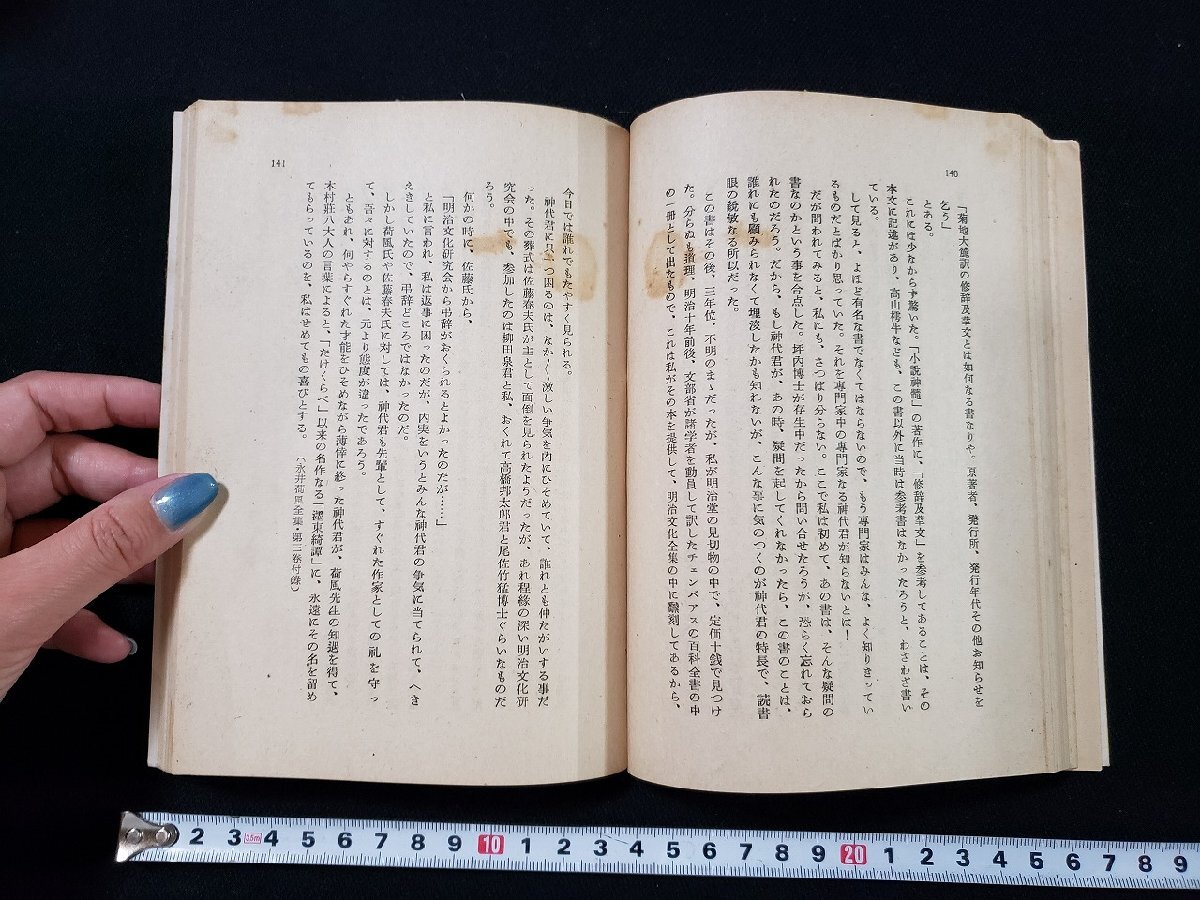 140
「菊地大麓訳の修辞及華文とは如何なる書なりや。原著者、発行所、発行年代その他お知らせを
乞う」
とある。
これには少なからず驚いた。「小説神髄」の著作に、「修辞及華文」を参考してあることは、その
本文に記述があり、高山樗牛なども、この書以外に当時は参考書はなかったろうと、わざわざ書い
ている。
して見ると、よほど有名な書でなくてはならないので、もう専門家はみんな、よく知りきってい
るものだとばかり思っていた。それを専門家中の専門家なる神代君が知らないとは!
だが問われてみると、私にも、さつぱり分らない。ここで私は初めて、あの書は、そんな疑問の
書なのかという事を合点した。坪内博士が存生中だったから問い合せたろうが、恐らく忘れておら
れたのだろう。だから、もし神代君が、あの時、疑問を起してくれなかったら、この書のことは、
誰れにも顧みられなくて埋没したかも知れないが、こんな事に気のつくのが神代君の特長で、読書
眼の鋭敏なる所以だった。
この書はその後、三年位、不明のまゝだったが、私が明治堂の見切物の中で、定価十銭で見つけ
た。分らぬも道理、明治十年前後、文部省が諸学者を動員して訳したチェンバアスの百科全書の中
の一冊として出たもので、これは私がその本を提供して、明治文化全集の中に飜刻してあるから、
141
今日では誰れでもたやすく見られる。
神代君に只一つ困るのは、なか〱激しい争気を内にひそめていて、誰れとも仲たがいする事だ
った。その葬式は佐藤春夫氏が主として面倒を見られたようだったが、あれ程縁の深い明治文化研
究会の中でも、参加したのは柳田泉君と私、おくれて高橋邦太郎君と尾佐竹猛博士くらいたものだ
ろう。
何かの時に、佐藤氏から、
「明治文化研究会から弔辞がおくられるとよかったのだが……」
と私に言われ、私は返事に困ったのだが、内実をいうとみんな神代君の争気に当てられて、へき
えきしていたので、弔辞どころではなかったのだ。
しかし荷風氏や佐藤春夫氏に対しては、神代君も先輩として、すぐれた作家としての礼を守っ
て、吾々に対するのとは、元より態度が違ったであろう。
ともあれ、何やらすぐれた才能をひそめながら薄倖に終った神代君が、荷風先生の知遇を得て、
木村荘八大人の言葉によると、「たけくらべ」以来の名作なる「濹東綺譚」に、永遠にその名を留め
てもらっているのを、私はせめてもの喜びとする。
(永井荷風全集・第二巻付録)
2 3 4 5 6 7 8 9 10 1 2 3 4 5 6 7 8 9 20 1 2 3 4 5 6 7 8 9